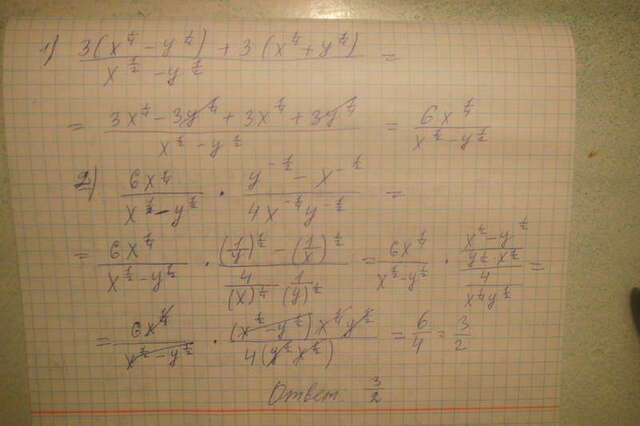 1) (3(x^{1/4} - y^{1/4}) + 3(x^{1/4} + y^{1/4})) / (x^{1/2} - y^{1/2}) =
= (3x^{1/4} - 3y^{1/4} + 3x^{1/4} + 3y^{1/4}) / (x^{1/2} - y^{1/2}) = 6x^{1/4} / (x^{1/2} - y^{1/2})
2) 6x^{1/4} / (x^{1/2} - y^{1/2}) · (y^{-1/2} - x^{-1/2}) / (4x^{-1/4} y^{-1/2}) =
= 6x^{1/4} / (x^{1/2} - y^{1/2}) · ((1/y)^{1/2} - (1/x)^{1/2}) / (4/(x)^{1/4} (1/y)^{1/2}) = 6x^{1/4} / (x^{1/2} - y^{1/2}) · ((x^{1/2} - y^{1/2}) / (y^{1/2} · x^{1/2})) / (4 / (x^{1/4} y^{1/2})) =
= 6x^{1/4} / (x^{1/2} - y^{1/2}) · ((x^{1/2} - y^{1/2}) x^{1/4} y^{1/2}) / (4(y^{1/2} x^{1/2})) = 6/4 = 3/2
Ответ 3/2